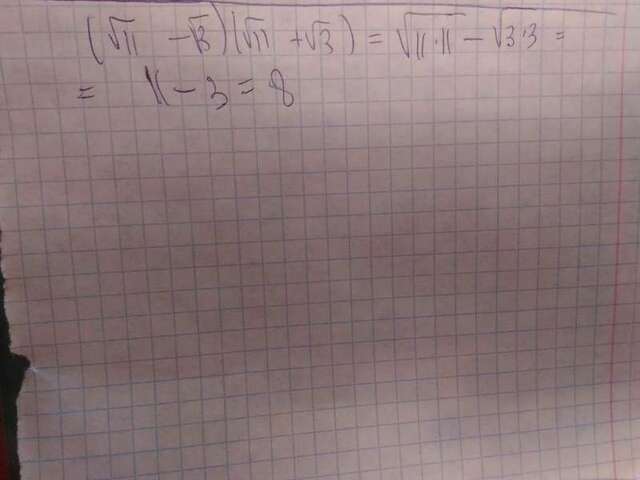 (√11 - √3)(√11 + √3) = √11·11 - √3·3 =
= 11 - 3 = 8